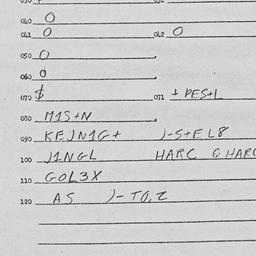 040 O
041 O 042 O
050 O
060 O
070 $ 071 ± PES+L
080 M1S+N
090 KEJN1G+ )-S+EL8
100 J1NGL HARC G HARC
110 GOL3X
120 AS )-TO,Z